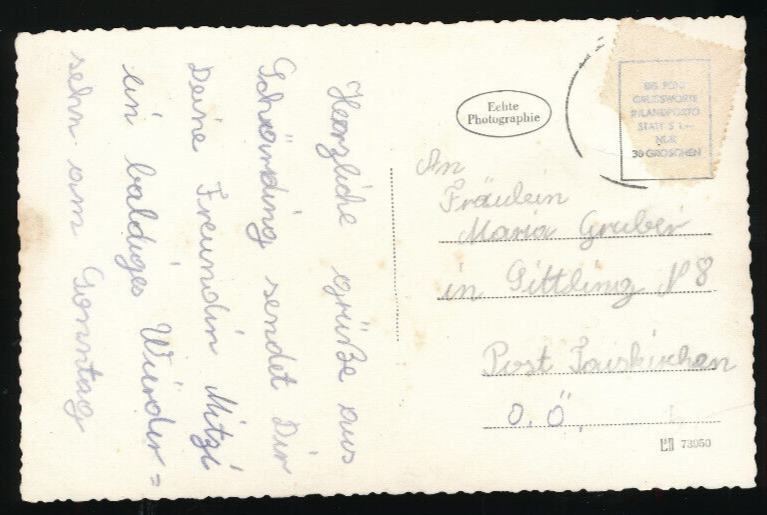 Herzliche Grüße aus
Schärding sendet Dir
Deine Freundin Mitzi
ein baldiges Wieder=
sehn am Sonntag
Echte
Photographie
BIS FÜNF
GRUSSWORTE
INLANDPORTO
STATT S 1.—
NUR
30 GROSCHEN
An
Fräulein
Maria Gruber
in Pittling N 8
Post Tauskirchen
O. Ö.
73950